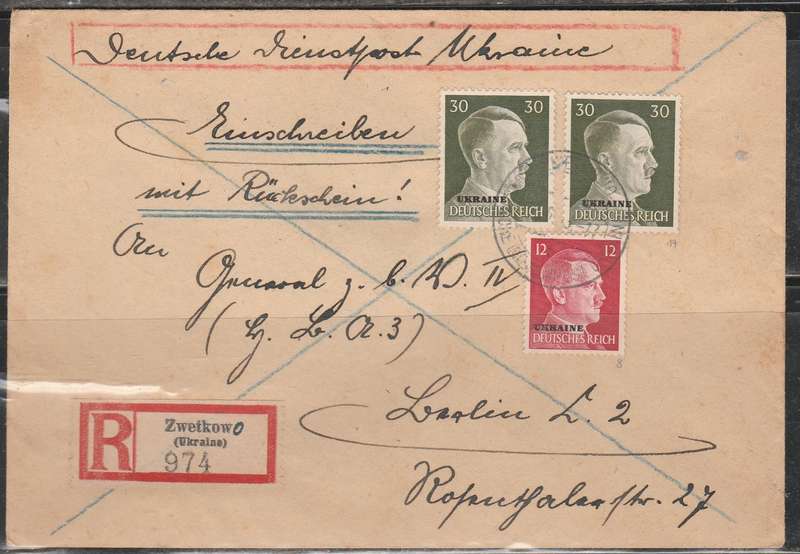 Deutsche Dienstpost Ukraine
Einschreiben
mit Rückschein!
30 30
UKRAINE
DEUTSCHES REICH
30 30
UKRAINE
DEUTSCHES REICH
12 12
UKRAINE
DEUTSCHES REICH
An
General z. b. V. IV
(H. B. A. 3)
Berlin C. 2
Rosenthalerstr. 27
R
Zwetkowo
(Ukraine)
974
19
8